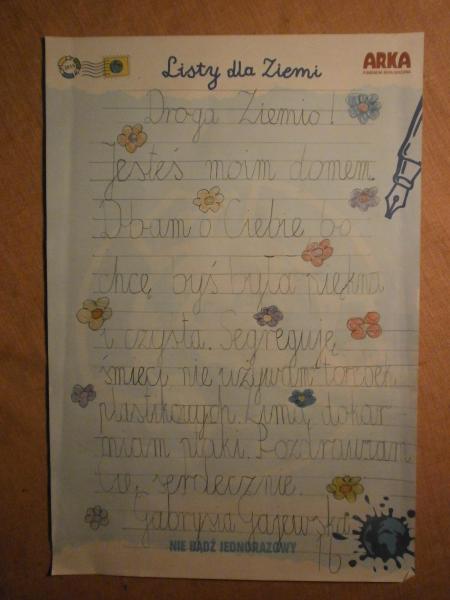 Listy dla Ziemi
ARKA
Droga Ziemio!
Jesteś moim domem.
Dbam o Ciebie bo
chcę byś była piękna
i czysta. Segreguję
śmieci, nie używam torebek
plastikowych. Zimą dokar
miam ptaki. Pozdrawiam
Cię, serdecznie.
Gabrysia Gajewska
1b
NIE BĄDŹ JEDNORAZOWY